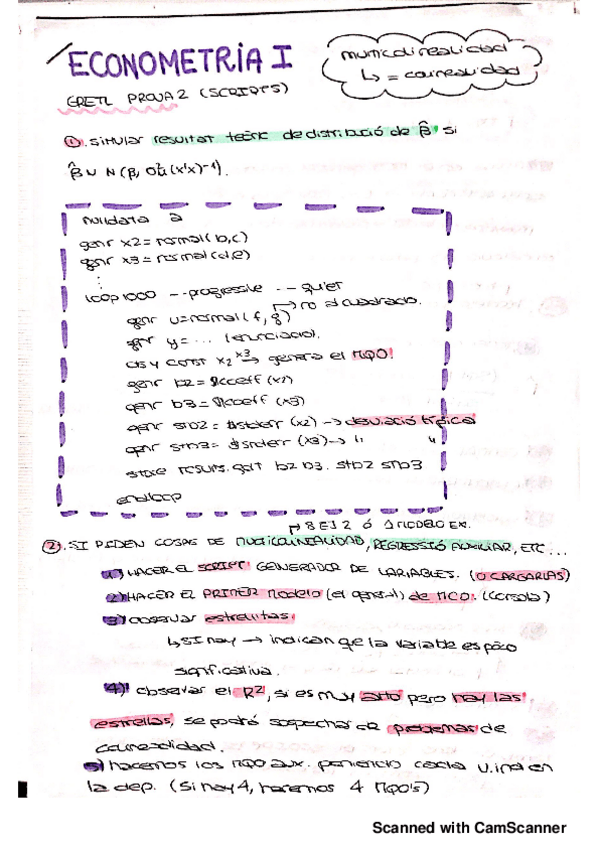 ECONOMETRIA I
multicolinealidad
↳ = colinealidad
GRETL PROVA 2 (SCRIPTS)
①. simular resultat teòric de distribució de β̂ si
β̂ ∪ N(β, σ²u(x'x)⁻¹).
nulldata a
genr x2 = normal(b,c)
genr x3 = normal(d,e)
⋮
loop 1000 --progressive --quiet
genr u=normal(f, g) → no al cuadrado.
genr y= ... (enunciado).
ols y const x2 x3 → genera el MQO!
genr b2 = $coeff (x2)
genr b3 = $coeff (x3)
genr stb2 = $stderr (x2) → desviació típica
genr stb3 = $stderr (x3) → " "
store results.gdt b2 b3 stb2 stb3
endloop
②. SI PIDEN COSAS DE MULTICOLINEALIDAD, REGRESSIÓ AUXILIAR, ETC...
1) HACER EL SCRIPT GENERADOR DE VARIABLES. (O CARGARLAS)
2) HACER EL PRIMER MODELO (el general) de MCO. (Consola)
3) observar estrellitas:
↳ SI hay → indican que la variable es poco
significativa.
4) observar el R², si es muy alto pero hay las
estrellas, se podrá sospechar de problemas de
colinealidad.
5) hacemos los MQO aux. poniendo cada v.ind en
la dep. (Si hay 4, haremos 4 MQO'S)
Scanned with CamScanner